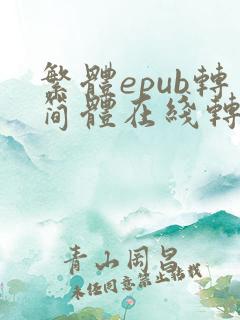 繁體epub轉
简體在綫轉
青山岡昌
未经同意禁止转载